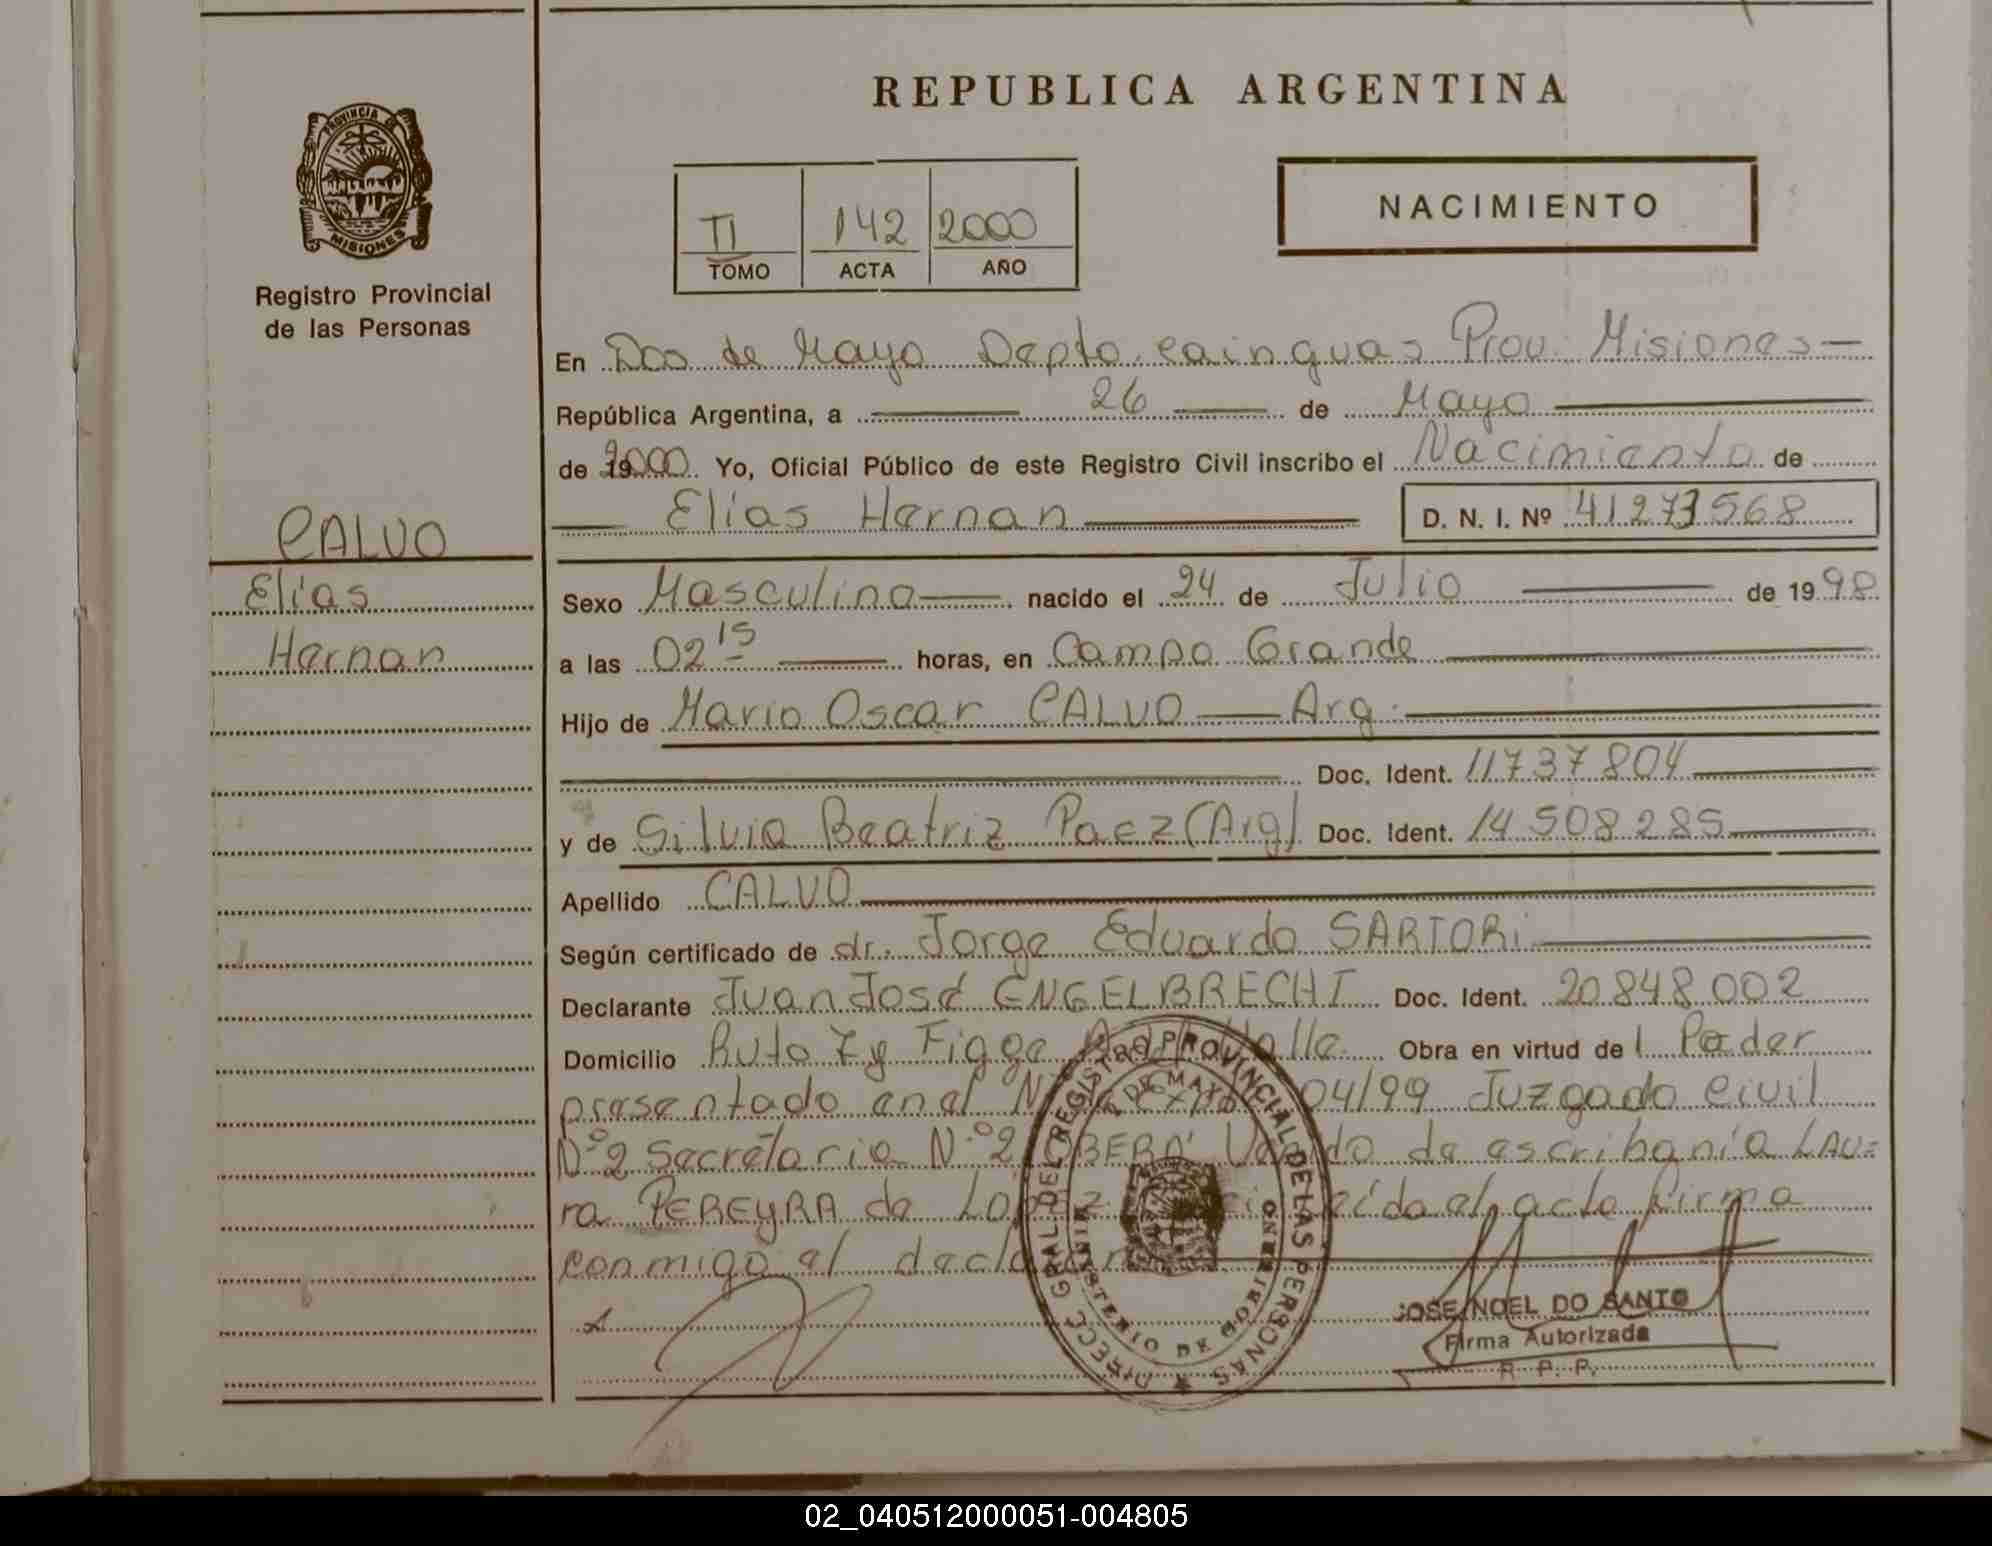 REPUBLICA ARGENTINA
PROVINCIA DE
MISIONES
Registro Provincial
de las Personas
TI 142 2000
TOMO ACTA AÑO
NACIMIENTO
En Dos de Mayo Depto. cainguas Prov. Misiones
República Argentina, a 26 de Mayo
de 2000 Yo, Oficial Público de este Registro Civil inscribo el Nacimiento de
Elías Hernan D. N. I. Nº 41273568
CALVO
Elías
Hernan
Sexo Masculino nacido el 24 de Julio de 1998
a las 02 15 horas, en Campo Grande
Hijo de Mario Oscar CALVO Arg.
Doc. Ident. 11737804
y de Silvia Beatriz Paez (Arg) Doc. Ident. 14508285
Apellido CALVO
Según certificado de dr. Jorge Eduardo SARTORi
Declarante Juan José ENGELBRECHT Doc. Ident. 20.848.002
Domicilio Ruta 7 y Valle Obra en virtud del Poder
presentado en el 04/99 Juzgado civil
Nº2 Secretaria N.º2 OBERA' de escribanía LAU=
ra PEREYRA de López el acto firma
conmigo el
DIRECC GRAL DEL REGISTRO PROVINCIAL DE LAS PERSONAS
2 DE MAYO
MINISTERIO DE GOBIERNO
JOSE NOEL DO SANTO
Firma Autorizada
R. P. P.
02_040512000051-004805